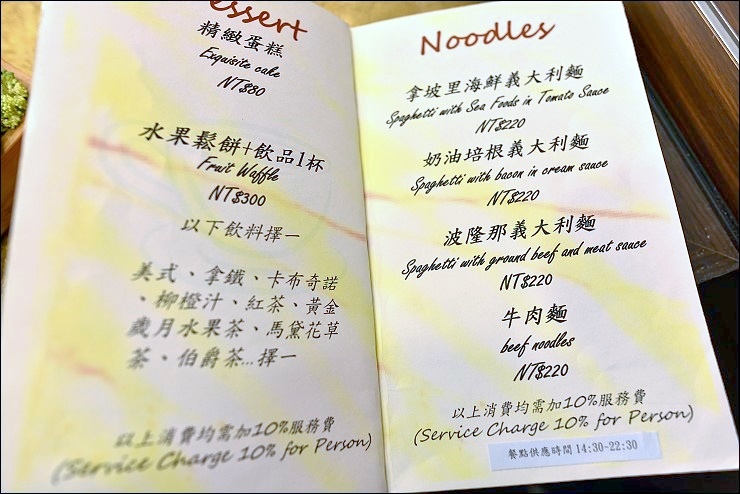 essert
精緻蛋糕
Exquisite cake
NT$80
水果鬆餅+飲品1杯
Fruit Waffle
NT$300
以下飲料擇一
美式、拿鐵、卡布奇諾
、柳橙汁、紅茶、黃金
歲月水果茶、馬黛花草
茶、伯爵茶...擇一
以上消費均需加10%服務費
(Service Charge 10% for Person)
Noodles
拿坡里海鮮義大利麵
Spaghetti with Sea Foods in Tomato Sauce
NT$220
奶油培根義大利麵
Spaghetti with bacon in cream sauce
NT$220
波隆那義大利麵
Spaghetti with ground beef and meat sauce
NT$220
牛肉麵
beef noodles
NT$220
以上消費均需加10%服務費
(Service Charge 10% for Person)
餐點供應時間 14:30~22:30